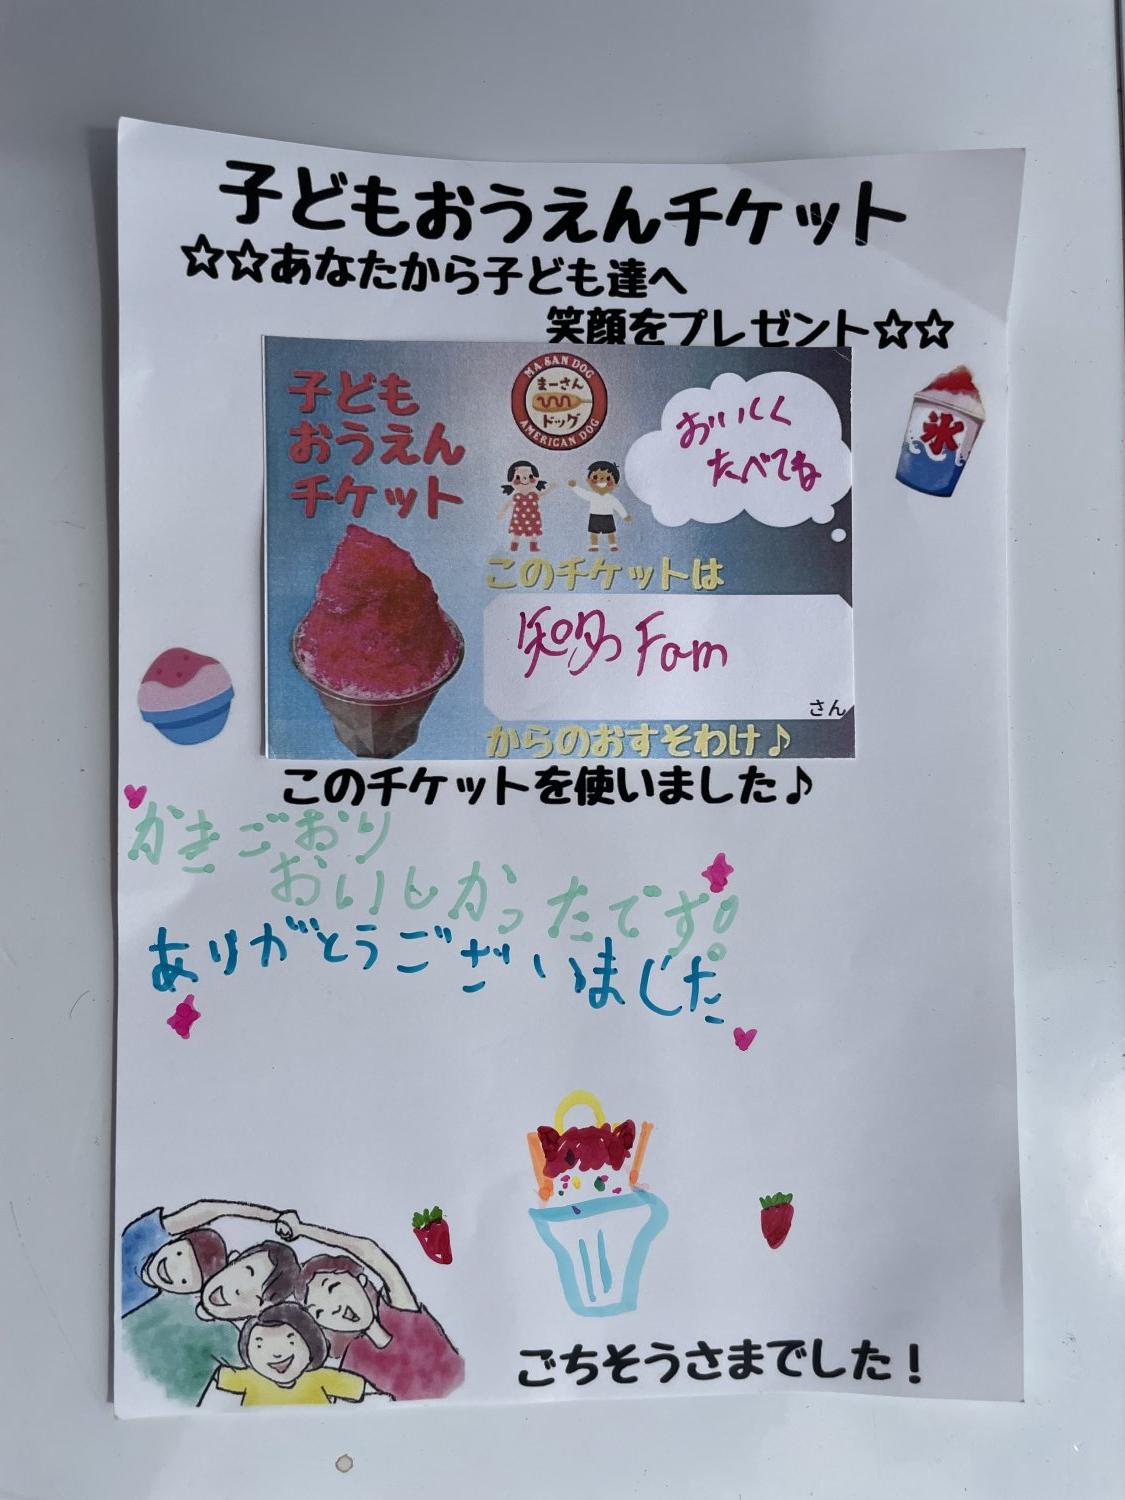 子どもおうえんチケット
☆☆あなたから子ども達へ
笑顔をプレゼント☆☆
子ども
おうえん
チケット
MA SAN DOG
まーさん
ドッグ
AMERICAN DOG
おいしく
たべてね
氷
このチケットは
知多 Fam
さん
からのおすそわけ♪
このチケットを使いました♪
かきごおり
おいしかったです!
ありがとうございました
ごちそうさまでした！